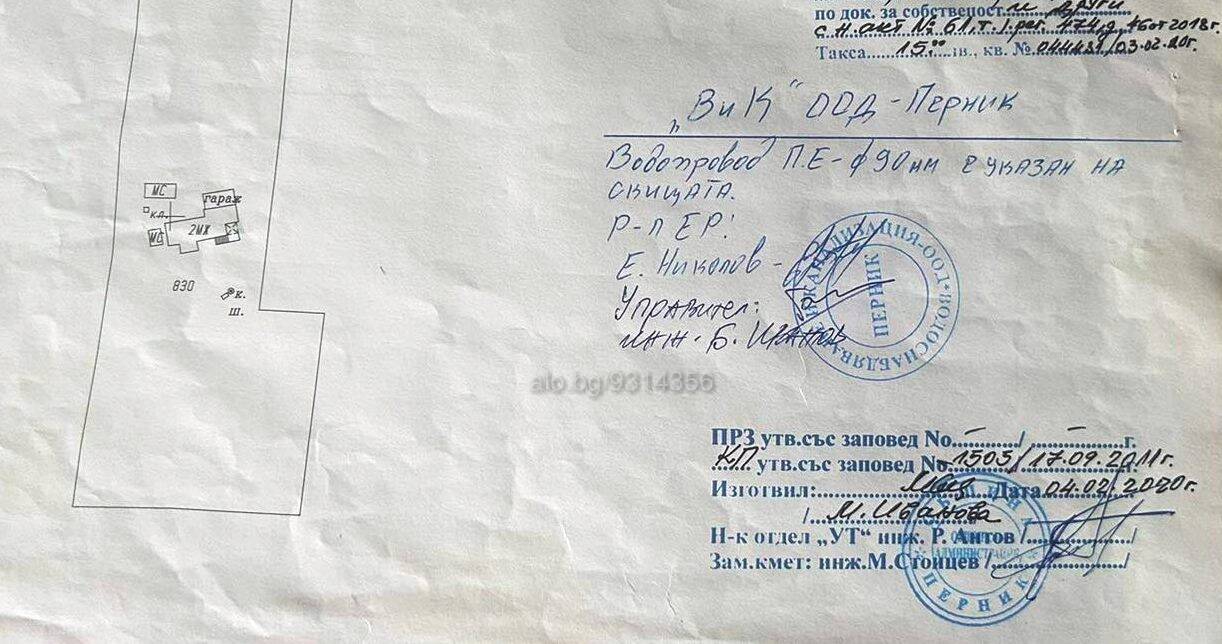 по док. за собственост.. и други
с н. акт № 61, т. I, рег. 474, д. 46 от 2018г.
Такса.......15.00..лв., кв. № 044431/03.02.20г.
„ВиК“ ООД - Перник
Водопровод П.Е - ф 90мм е указан на
скицата.
Р-л ЕР:
Е. Николов -
Управител:
инж. Б. Иванов
ИНЖКАНАЛИЗАЦИЯ-ООД*ВОДОСНАБДЯВАНЕ
ПЕРНИК
МС
гараж
кл.
2МЖ
МС
830
к.
ш.
alo.bg/9314356
ПРЗ утв.със заповед No...–...../......–.......г.
КП. утв.със заповед No. 1503/17.09.2011г.
Изготвил:.............Дата 04.02.2020г.
/...М. Иванова
Н-к отдел „УТ“ инж. Р. Антов /................/
Зам.кмет: инж.М.Стоицев /..................../
ОБЩИНА
АДМИНИСТРАЦИЯ
ПЕРНИК